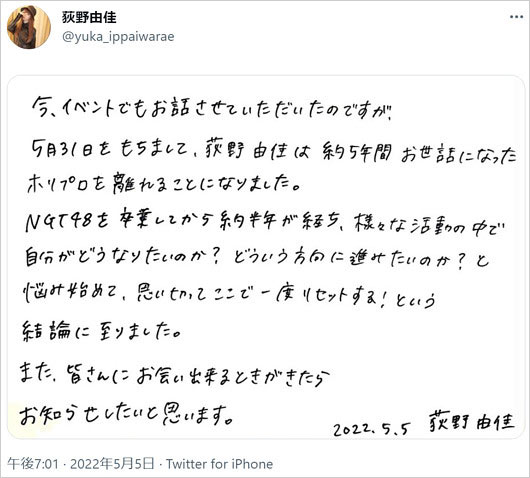 荻野由佳
@yuka_ippaiwarae
今、イベントでもお話させていただいたのですが、
5月31日をもちまして、荻野由佳は約5年間お世話になった
ホリプロを離れることになりました。
NGT48を卒業してから約半年が経ち、様々な活動の中で
自分がどうなりたいのか?どういう方向に進みたいのか?と
悩み始めて、思い切ってここで一度リセットする!という
結論に至りました。
また、皆さんにお会い出来るときがきたら
お知らせしたいと思います。
2022.5.5 荻野由佳
午後7:01 · 2022年5月5日 · Twitter for iPhone